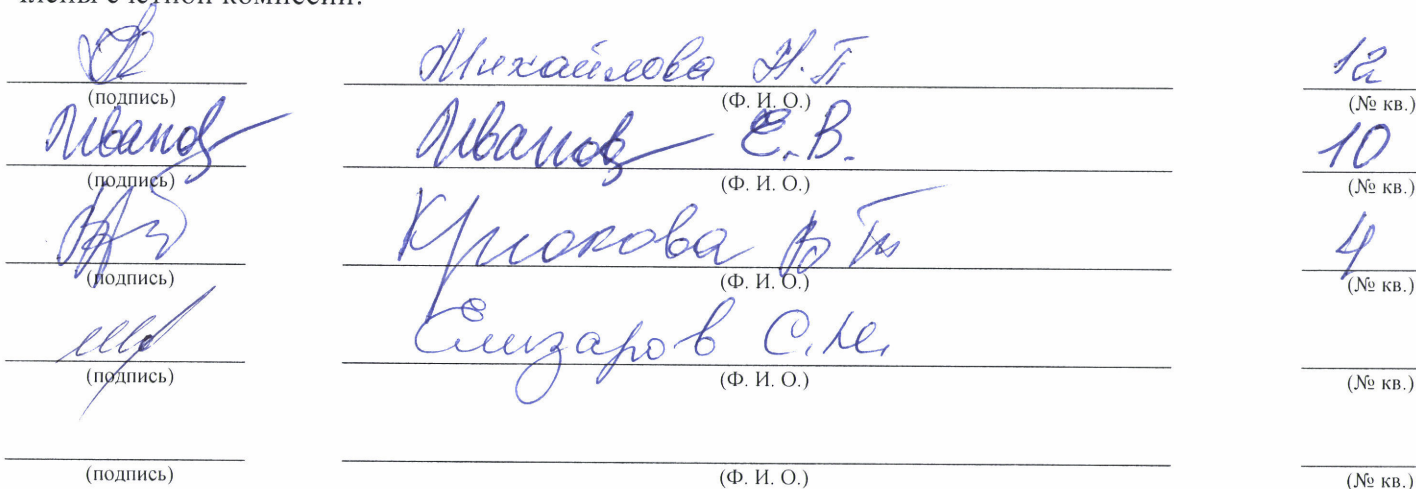 члены счетной комиссии:
Михайлова Н.П 12
(подпись) (Ф. И. О.) (№ кв.)
Иванов Иванов Е.В. 10
(подпись) (Ф. И. О.) (№ кв.)
Крюкова В Т 4
(подпись) (Ф. И. О.) (№ кв.)
Елизаров С.Н.
(подпись) (Ф. И. О.) (№ кв.)
(подпись) (Ф. И. О.) (№ кв.)